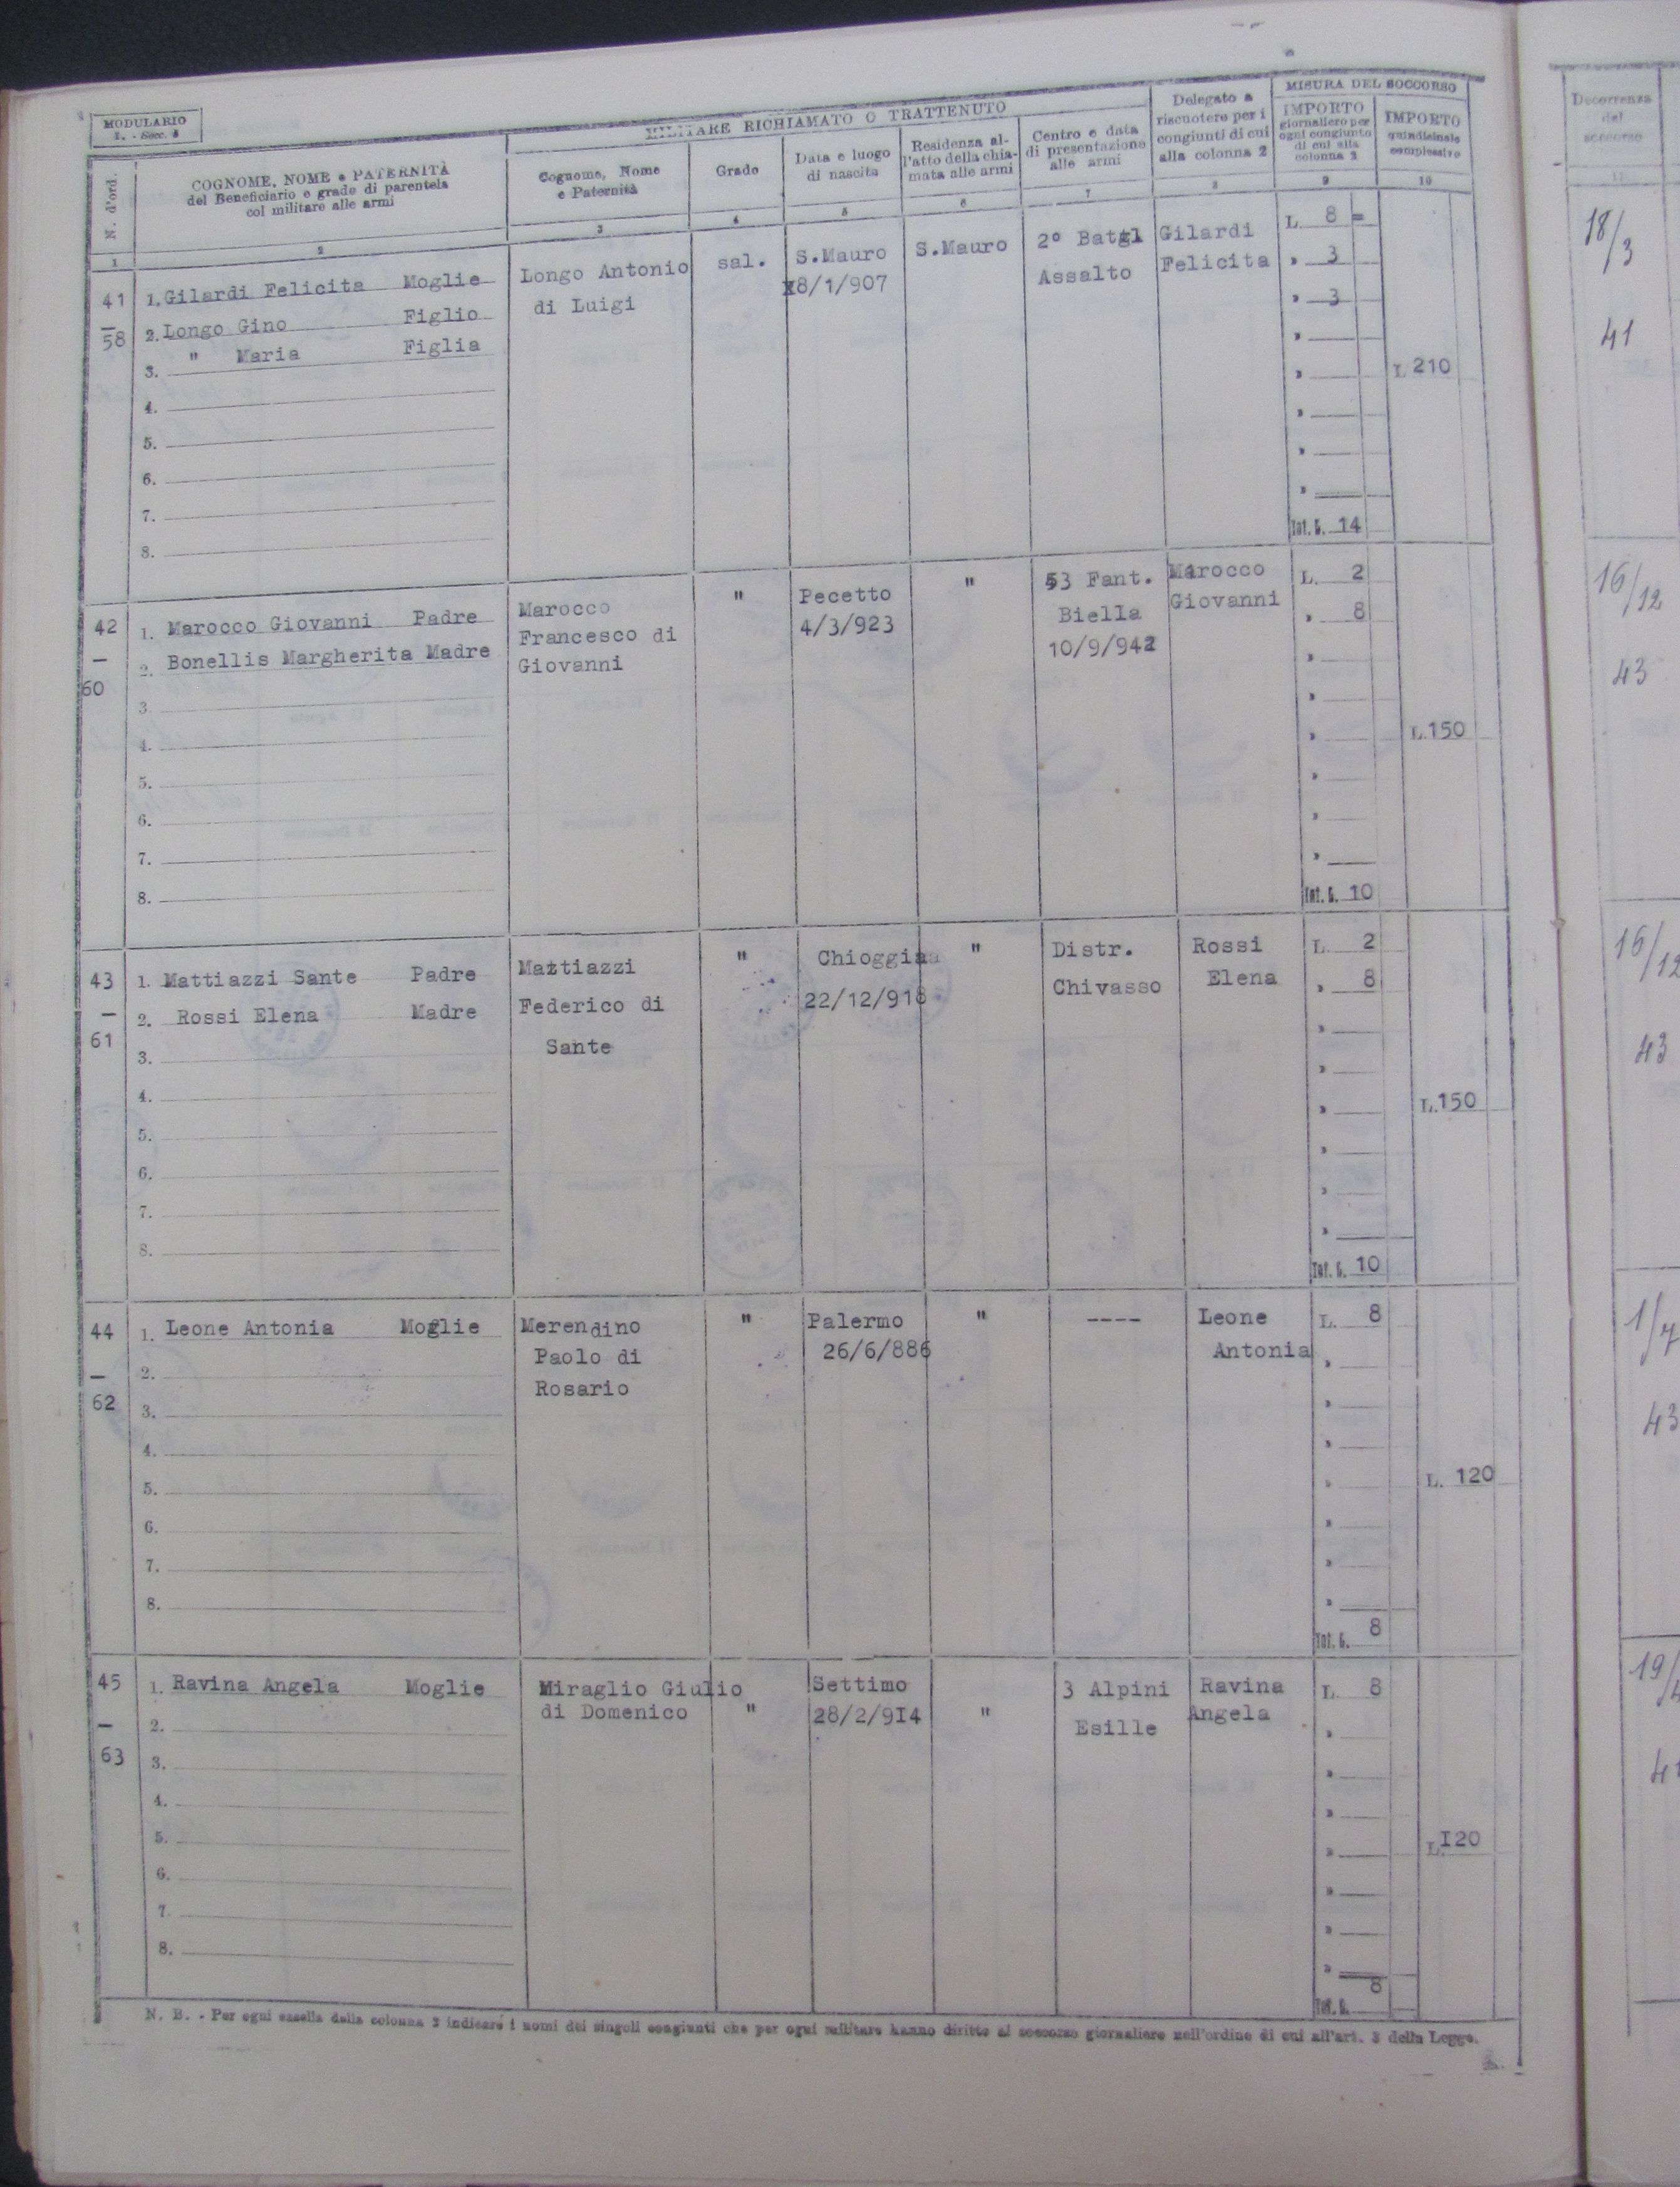 MODULARIO
I. - Socc. 4
N. d'ord.
COGNOME, NOME e PATERNITÀ
del Beneficiario e grado di parentela
col militare alle armi
MILITARE RICHIAMATO O TRATTENUTO
Cognome, Nome
e Paternità
Grado
Data e luogo
di nascita
Residenza al-
l'atto della chia-
mata alle armi
Centro e data
di presentazione
alle armi
Delegato a
riscuotere per i
congiunti di cui
alla colonna 2
MISURA DEL SOCCORSO
IMPORTO
giornaliero per
ogni congiunto
di cui alla
colonna 2
IMPORTO
quindicinale
complessivo
Decorrenza
del
soccorso
1 2 3 4 5 6 7 8 9 10 11
41
—
58
1. Gilardi Felicita Moglie
2. Longo Gino Figlio
3. " Maria Figlia
4.
5.
6.
7.
8.
Longo Antonio
di Luigi
sal.
S.Mauro
18/1/907
S.Mauro
2° Batgl
Assalto
Gilardi
Felicita
L. 8 =
" 3
" 3
Tot. G. 14
L 210
18/3
41
42
—
60
1. Marocco Giovanni Padre
2. Bonellis Margherita Madre
3.
4.
5.
6.
7.
8.
Marocco
Francesco di
Giovanni
"
Pecetto
4/3/923
"
53 Fant.
Biella
10/9/942
Marocco
Giovanni
L. 2
" 8
Tot. G. 10
L.150
16/12
43
43
—
61
1. Mattiazzi Sante Padre
2. Rossi Elena Madre
3.
4.
5.
6.
7.
8.
Mattiazzi
Federico di
Sante
"
Chioggia
22/12/918
"
Distr.
Chivasso
Rossi
Elena
L. 2
" 8
Tot. G. 10
L.150
16/12
43
44
—
62
1. Leone Antonia Moglie
2.
3.
4.
5.
6.
7.
8.
Merendino
Paolo di
Rosario
"
Palermo
26/6/886
"
----
Leone
Antonia
L. 8
Tot. G. 8
L. 120
1/7
43
45
—
63
1. Ravina Angela Moglie
2.
3.
4.
5.
6.
7.
8.
Miraglio Giulio
di Domenico
"
Settimo
28/2/9I4
"
3 Alpini
Esille
Ravina
Angela
L. 8
Tot. G. 8
L.I20
19/
N. B. - Per ogni casella della colonna 2 indicare i nomi dei singoli congiunti che per ogni militare hanno diritto al soccorso giornaliero nell'ordine di cui all'art. 3 della Legge.